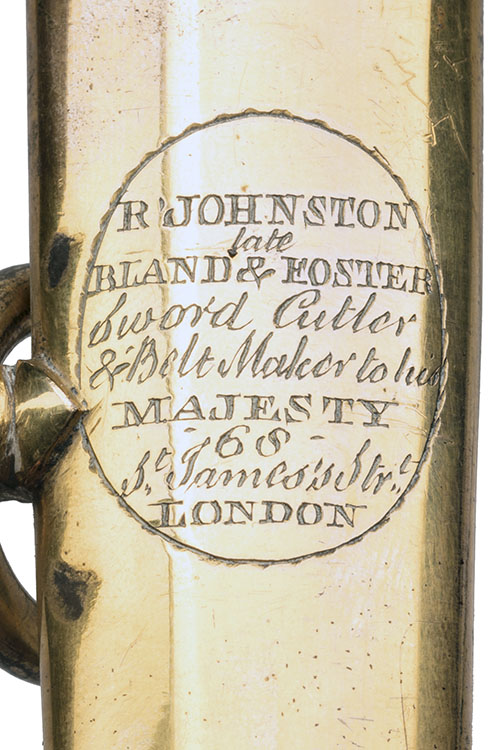 Rᵈ JOHNSTON
late
BLAND & FOSTER
Sword Cutler
& Belt Maker to his
MAJESTY
- 68 -
Sᵗ. James's Strᵗ.
LONDON